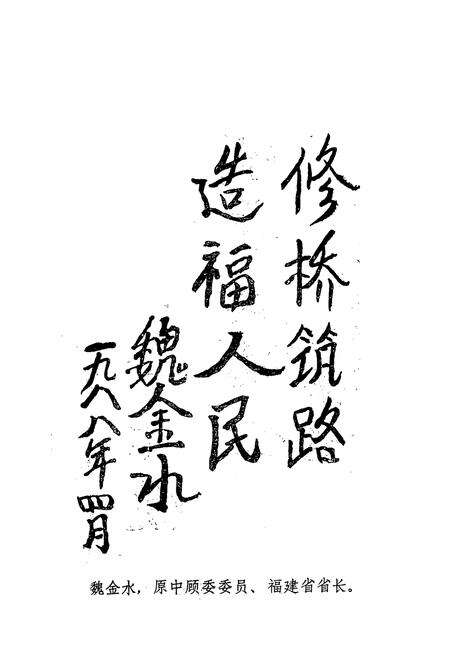 修桥筑路
造福人民
魏金水
一九八八年四月
魏金水，原中顾委委员、福建省省长。